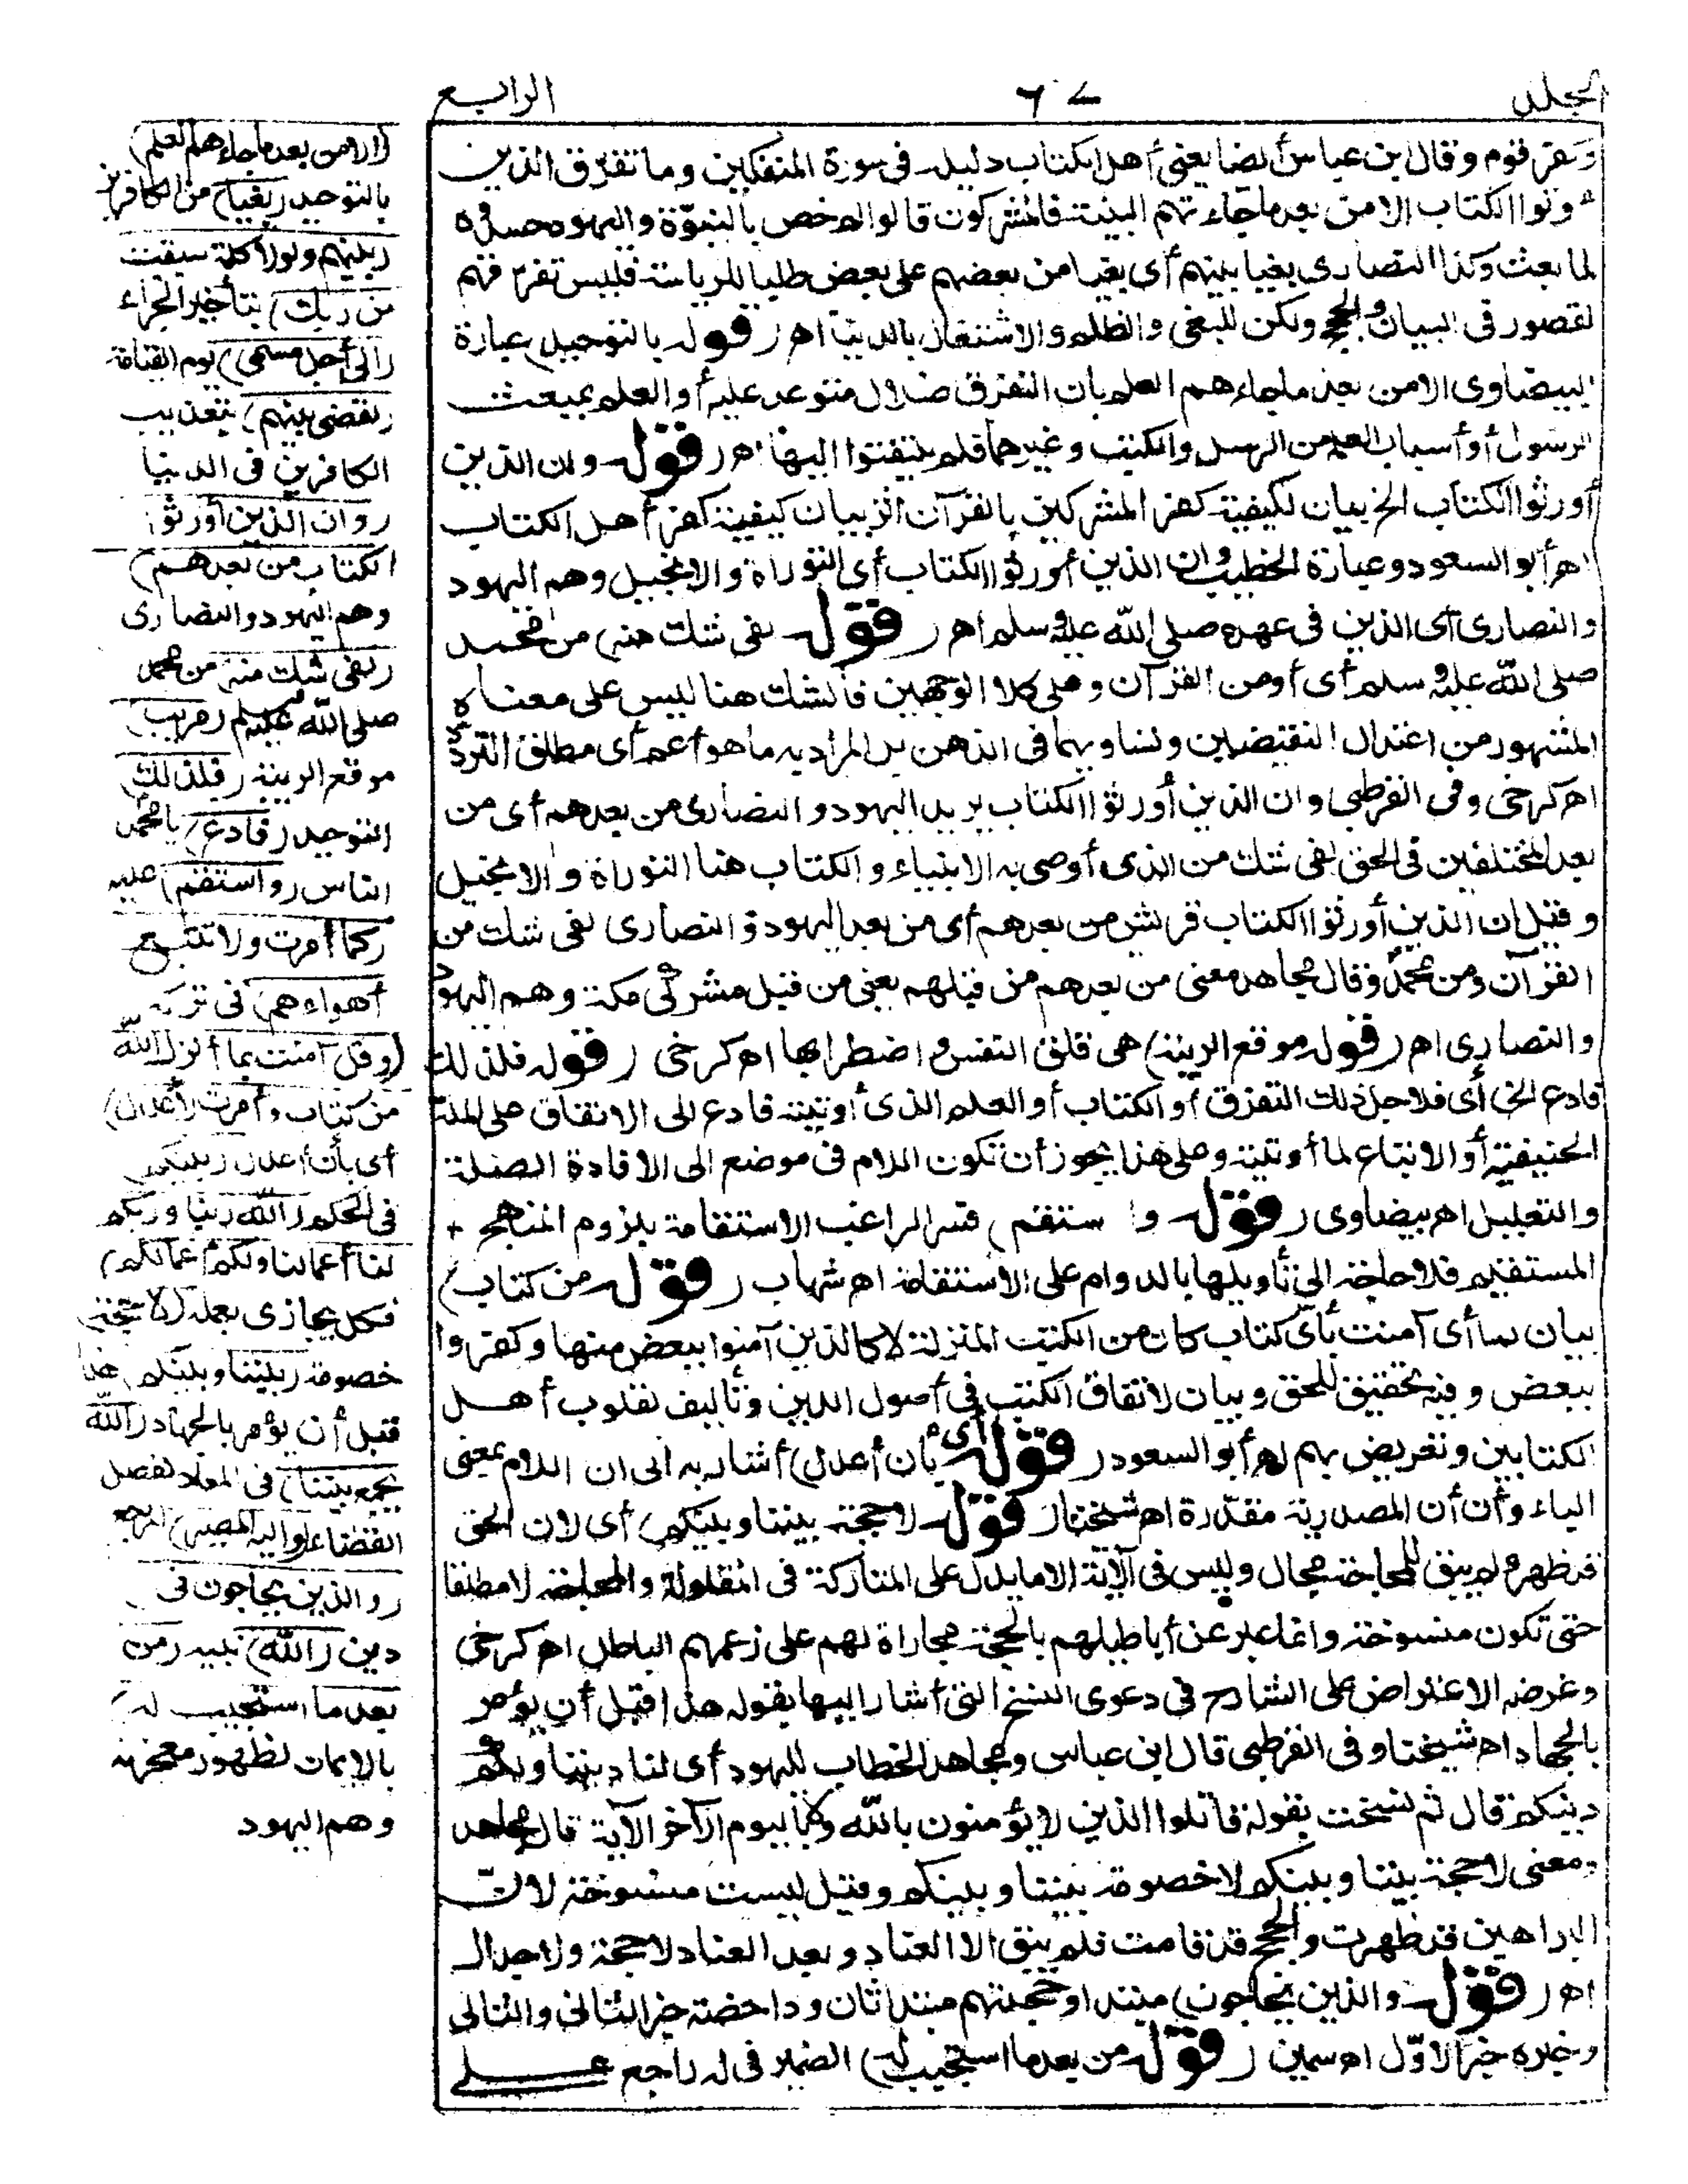 المجلد
٦٧
الرابع
وكفر قوم وقال ابن عباس أيضا يعنى أهل الكتاب دليله فى سورة المنفكين وما تفرق الذين
أوتوا الكتاب الا من بعد ما جاءتهم البينة فالمشركون قالوا لم خص بالنبوة واليهود حسدوه
لما بعث وكذا النصارى بغيا بينهم أى بغيا من بعضهم على بعض طلبا للرياسة فليس تفرقهم
لقصور فى البيان والحجج ولكن للبغى والظلم والاشتغال بالدنيا اهـ (قوله بالتوحيد) عبارة
البيضاوى الا من بعد ما جاءهم العلم بان التفرق ضلال متوعد عليه أو العلم بمبعث
الرسول أو أسباب العلم من الرسل والكتب وغيرهما فلم يلتفتوا اليها اهـ (قوله وان الذين
أورثوا الكتاب الخ بيان لكيفية كفر المشركين بالقرآن اثر بيان كيفية كفر أهل الكتاب
اهـ أبو السعود وعبارة الخطيب وان الذين أورثوا الكتاب أى التوراة والانجيل وهم اليهود
والنصارى أى الذين فى عهده صلى الله عليه وسلم اهـ (قوله لفى شك منه) من محمد
صلى الله عليه وسلم أى أو من القرآن وعلى كلا الوجهين فالشك هنا ليس على معناه
المشهور من اعتدال النقيضين وتساويهما فى الذهن بل المراد به ما هو أعم أى مطلق التردد
اهـ كرخى وفى القرطبى وان الذين أورثوا الكتاب يريد اليهود والنصارى من بعدهم أى من
بعد المختلفين فى الحق لفى شك من الذى أوصى به الانبياء والكتاب هنا التوراة والانجيل
وقيل ان الذين أورثوا الكتاب قريش من بعدهم أى من بعد اليهود والنصارى لفى شك من
القرآن ومن محمد وقال مجاهد معنى من بعدهم من قبلهم يعنى من قبل مشركى مكة وهم اليهود
والنصارى اهـ (قوله موقع الريبة) هى قلق النفس واضطرابها اهـ كرخى (قوله فلذلك
فادع الخ) أى فلاجل ذلك التفرق أو الكتاب أو العلم الذى أوتيته فادع الى الاتفاق على الملة
الحنيفية أو الاتباع لما أوتيته وعلى هذا يجوز أن تكون اللام فى موضع الى الافادة الصلة
والتعليل اهـ بيضاوى (قوله واستقم) فسر الراغب الاستقامة بلزوم المنهج +
المستقيم فلا حاجة الى تأويلها بالدوام على الاستقامة اهـ شهاب (قوله من كتاب)
بيان لما أى آمنت بأى كتاب كان من الكتب المنزلة لا كالذين آمنوا ببعض منها وكفروا
ببعض وفيه تحقيق للحق وبيان لاتفاق الكتب فى أصول الدين وتأليف لقلوب أهل
الكتابين وتعريض بهم اهـ أبو السعود (قوله أى بأن أعدل) أشار به الى ان اللام بمعنى
الباء وأن أن المصدرية مقدّرة اهـ شيخنا (قوله لا حجة بيننا وبينكم) أى لان الحق
قد ظهر ولم يبق للمحاجة مجال وليس فى الآية الا ما يدل على المتاركة فى المقاولة والمحاجة لا مطلقا
حتى تكون منسوخة وانما عبر عن أباطيلهم بالحجة مجاراة لهم على زعمهم الباطل اهـ كرخى
وغرضه الاعتراض على الشارح فى دعوى النسخ التى أشار اليها بقوله هذا قبل أن يؤمر
بالجهاد اهـ شيخنا وفى القرطبى قال ابن عباس ومجاهد الخطاب لليهود أى لنا ديننا ولكم
دينكم قال ثم نسخت بقوله قاتلوا الذين لا يؤمنون بالله ولا باليوم الآخر الآية قال مجاهد
ومعنى لا حجة بيننا وبينكم لا خصومة بيننا وبينكم وقيل ليست منسوخة لان
البراهين قد ظهرت والحجج قد قامت فلم يبق الا العناد وبعد العناد لا حجة ولا جدال
اهـ (قوله والذين يحاجون) مبتدا وحجتهم مبتدا ثان وداحضة خبر الثانى والثانى
وخبره خبر الاوّل اهـ سمين (قوله من بعد ما استجيب له) الضمير فى له راجع على
(الا من بعد ما جاءهم العلم)
بالتوحيد (بغيا) من الكافرين
(بينهم ولولا كلمة سبقت
من ربك) بتأخير الجزاء
(الى أجل مسمى) يوم القيامة
(لقضى بينهم) بتعذيب
الكافرين فى الدنيا
(وان الذين أورثوا
الكتاب من بعدهم)
وهم اليهود والنصارى
(لفى شك منه) من محمد
صلى الله عليه وسلم (مريب)
موقع الريبة (فلذلك)
التوحيد (فادع) يا محمد
الناس (واستقم) عليه
(كما أمرت ولا تتبع
أهواءهم) فى تركه
(وقل آمنت بما أنزل الله
من كتاب وأمرت لأعدل)
أى بأن أعدل (بينكم)
فى الحكم (الله ربنا وربكم
لنا أعمالنا ولكم أعمالكم)
فكل يجازى بعمله (لا حجة)
خصومة (بيننا وبينكم) هذا
قبل أن يؤمر بالجهاد (الله
يجمع بيننا) فى المعاد لفصل
القضاء (واليه المصير) المرجع
(والذين يحاجون فى
دين (الله) نبيه (من
بعد ما استجيب له)
بالايمان لظهور معجزته
وهم اليهود